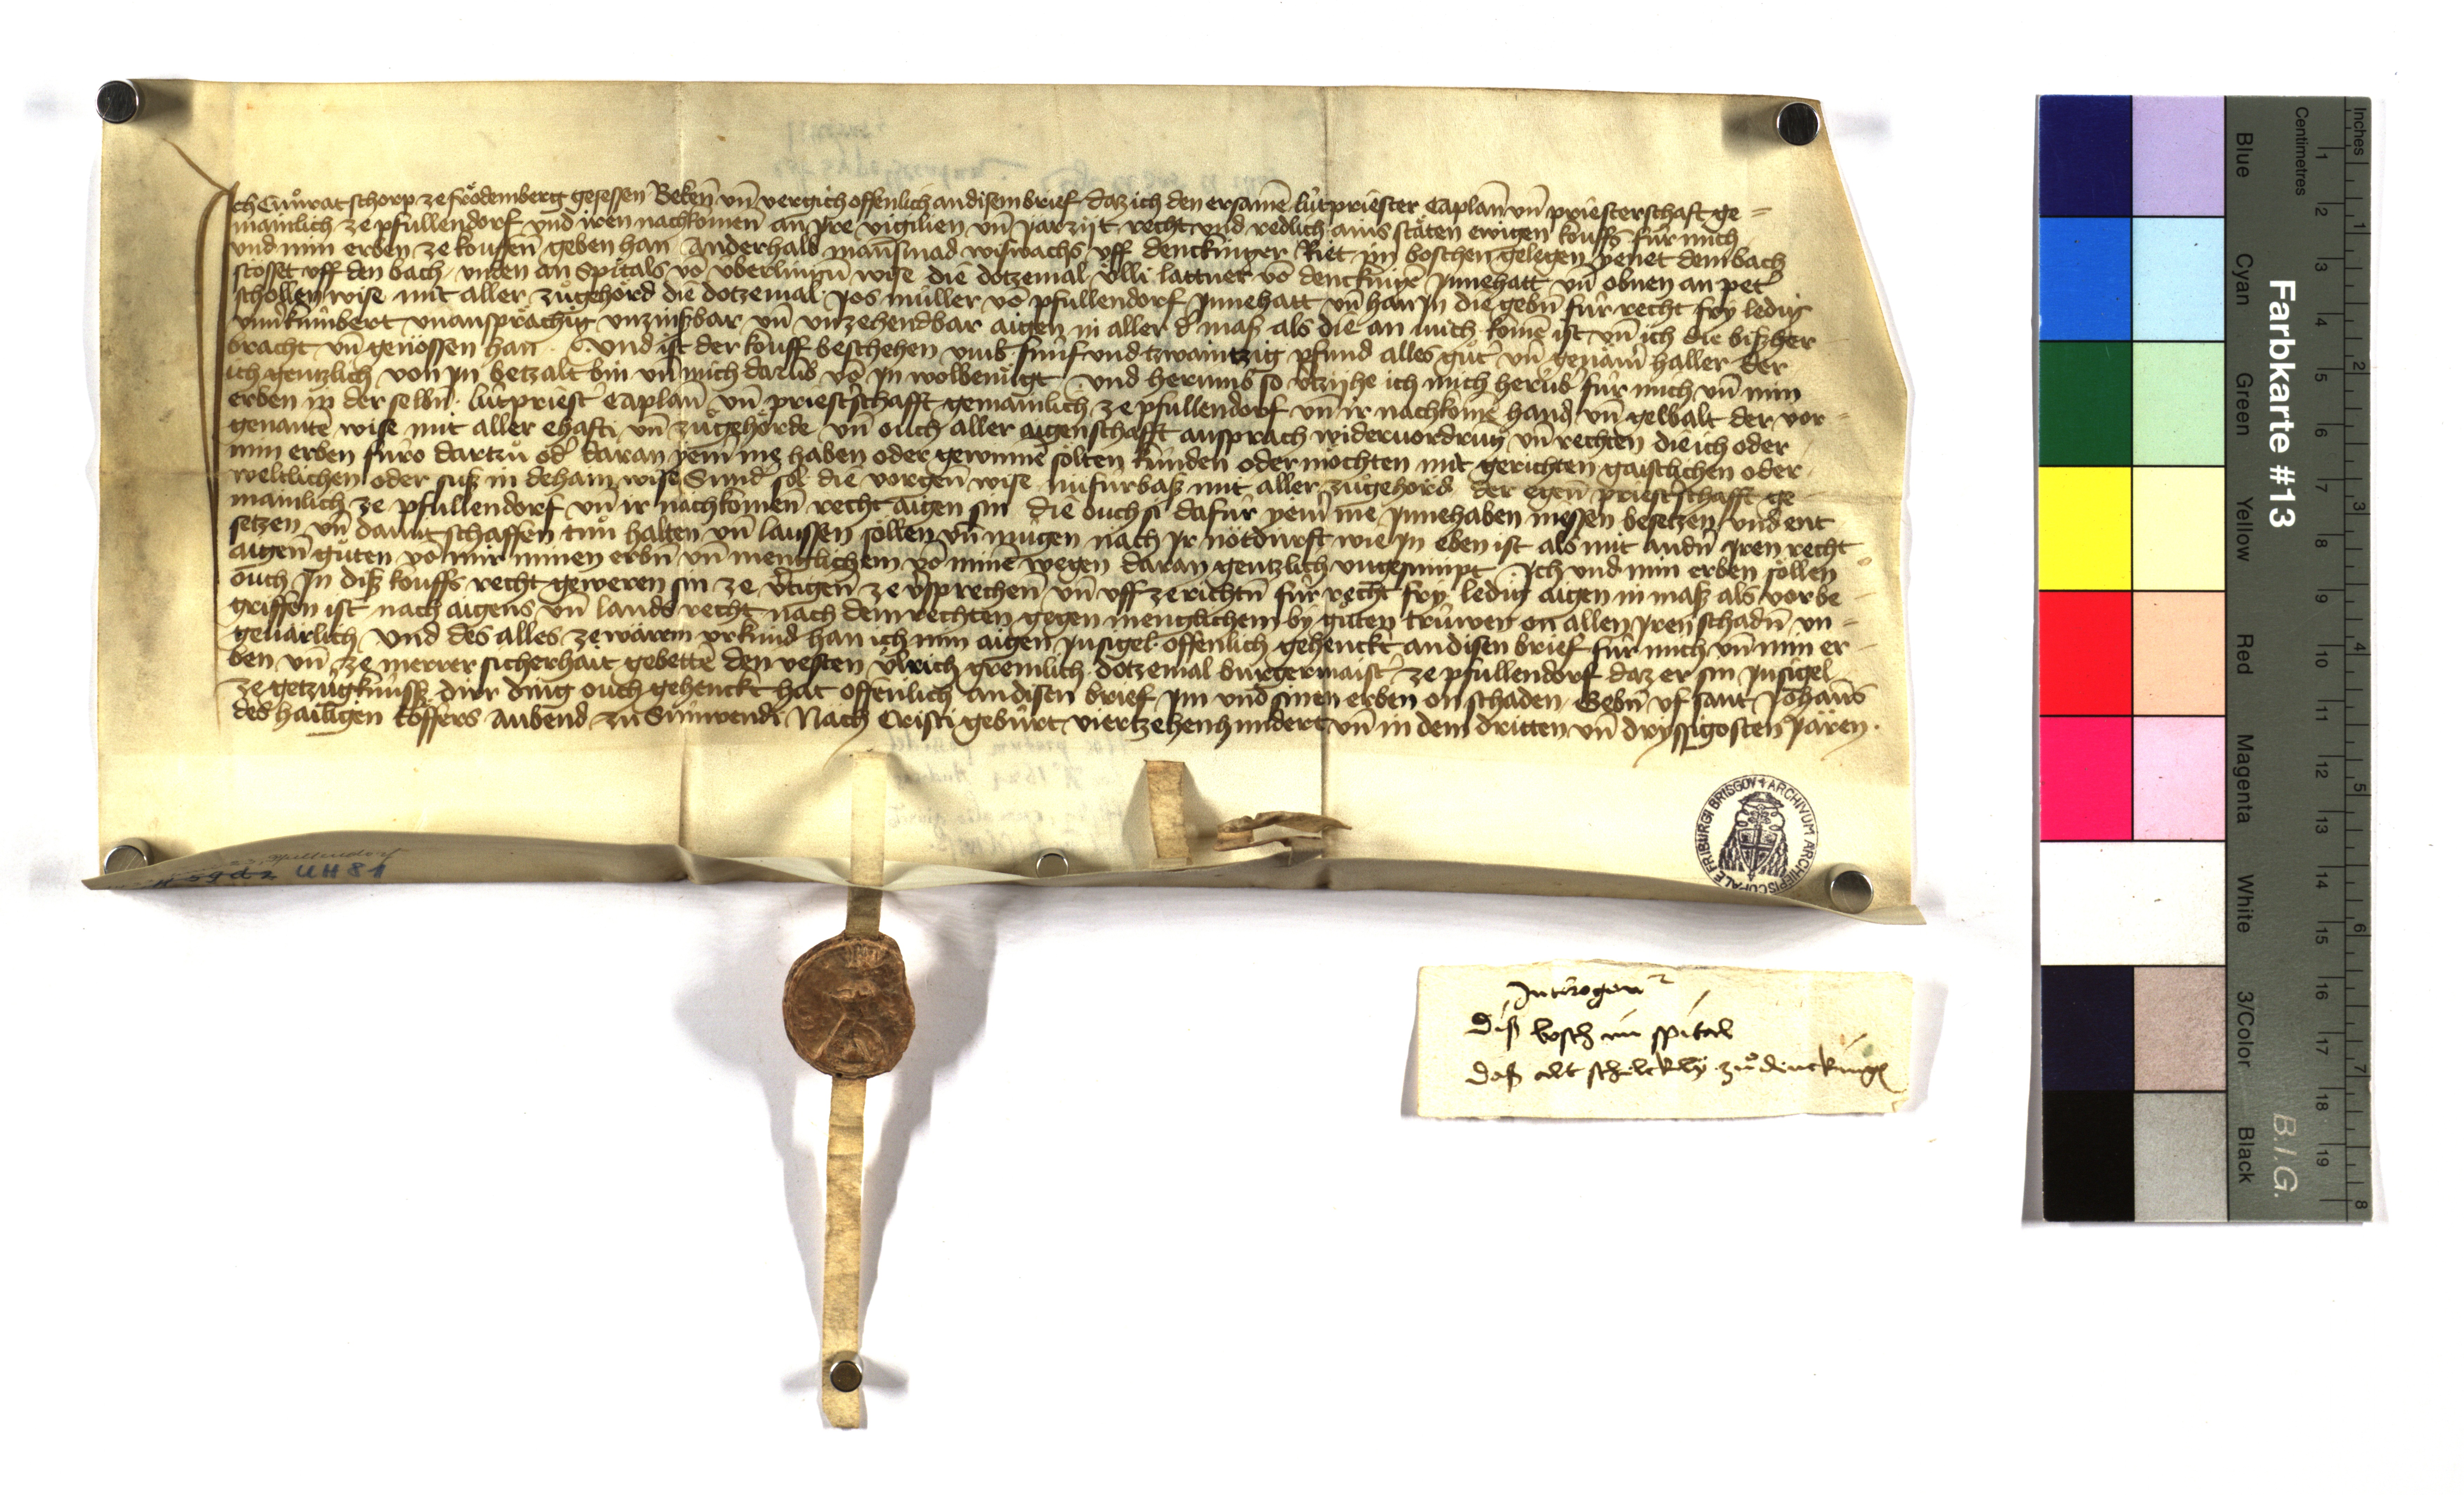 Ich Cuͦnrat schorp ze froͤdemberg gesessen Beken̄ vn̄ vergich offenlich an disem brief daz ich den ersamē lútpriester Caplan̄ vn̄ priesterschaft ge=
mainlich ze pfullendorf und iren nachkomen̄ an jre vigilien vn̄ jarzijt recht und redlich ains stäten ewigen kouffs für mich
und min erben ze kouffen geben han Anderhalb man̄smad wiswachs vff denckinger Riet jn boschen gelegen yenet dem bach
stosset vff den bach vnden an Spitals vō v́berlingn̄ wise die dotzemal v́lli lattner vō denckingē jnnehatt vn̄ obnen an pet̄
schollen wise mit aller zuͦgehoͤrd die dotzemal jos mu̇ller vō pfullendorf jnnehatt vn̄ han jn die gebn̄ für recht fry ledig
vnuerkúmbert vnanspraͤchig vnzinßbar vn̄ vnzehendbar aigen in aller d̄ maß als die an mich komē ist vn̄ ich die bißher
bracht vn̄ genossen han Und ist der kouff beschehen vmb fúnf und tzwaintzig pfund alles guͦt vn̄ genäm̄ haller der
ich gentzlich von jn betzalt bin vn̄ mich darūb vō jn wolbenuͤgt Und herumb so v̄tzyhe ich mich herūb für mich vn̄ min
erben in der selbn̄ lútpriest̄ Caplan̄ vn̄ priest̄schafft gemainlich ze pfullendorf vn̄ ir nachkomē hand vn̄ gewalt der vor=
genante wise mit aller ehafti vn̄ zuͦgehoͤrde vn̄ ouch aller aigenschafft ansprach widervordrung vn̄ rechten die ich oder
min erben fúro dartzuͦ od̄ daran yem̄ me haben oder gewinnē sölten kúnden oder möchten mit gerichten gaistlichen oder
weltlichen oder suß in dehain wise Sund̄ sol die vorgen̄ wise nufúrbaß mit aller zuͦgehoͤrd der egen̄ priest̄schafft ge
mainlich ze pfullendorf vn̄ ir nachkomen̄ recht aigen sin die ouch si dafúr yem̄ me jnnehaben niessen besetzen und ent
setzen vn̄ damit schaffen tuͦn halten vn̄ laussen söllen vn̄ mugen nach jr notdurft wie jn eben ist als mit andn̄ jren recht
aigen̄ guͤten vō mir minen erbn̄ vn̄ menglichem vō minē wegen daran gentzlich vngesumpt Ich und min erben söllen
ouch jn diß kouffs recht geweren sin ze v̄tigen̄ ze v̄sprechen vn̄ vff ze richtn̄ für recht fry ledig aigen in maß als vorbe
griffen ist nach aigens vn̄ lands recht nach dem rechten gegen menglichem by guͦten trúwen on allen jren schadn̄ vn=
geuarlich Und des alles ze wärem vrkúnd han ich min aigen jnsigel offenlich gehenckt an disen brief für mich vn̄ min er
ben vn̄ ze merrer sicherhait gebettē den vesten v̊lrich gremlich dotzemal burgermaist̄ ze pfullendorf daz er sin jnsigel
ze getzúgknúß dirr ding ouch gehenckt hat offenlich an disen brief jm und sinen erben on schaden Gebn̄ vf sant Johans
des hailigen töffers aubend zu Súnwendi Nach Cristi gebúrt viertzehenhundert vn̄ in dem dritten vn̄ dryssigosten jaren.
Pfullendorf
UH 81
FRIBURGI BRISGOV + ARCHIVUM ARCHIEPISCOPALE
diß bosch im spital
daß alt zuͦ denckingē
Farbkarte #13
B.I.G.
Centimetres
Inches
Blue Cyan Green Yellow Red Magenta White 3/Color Black
1 2 3 4 5 6 7 8 9 10 11 12 13 14 15 16 17 18 19
1 2 3 4 5 6 7 8